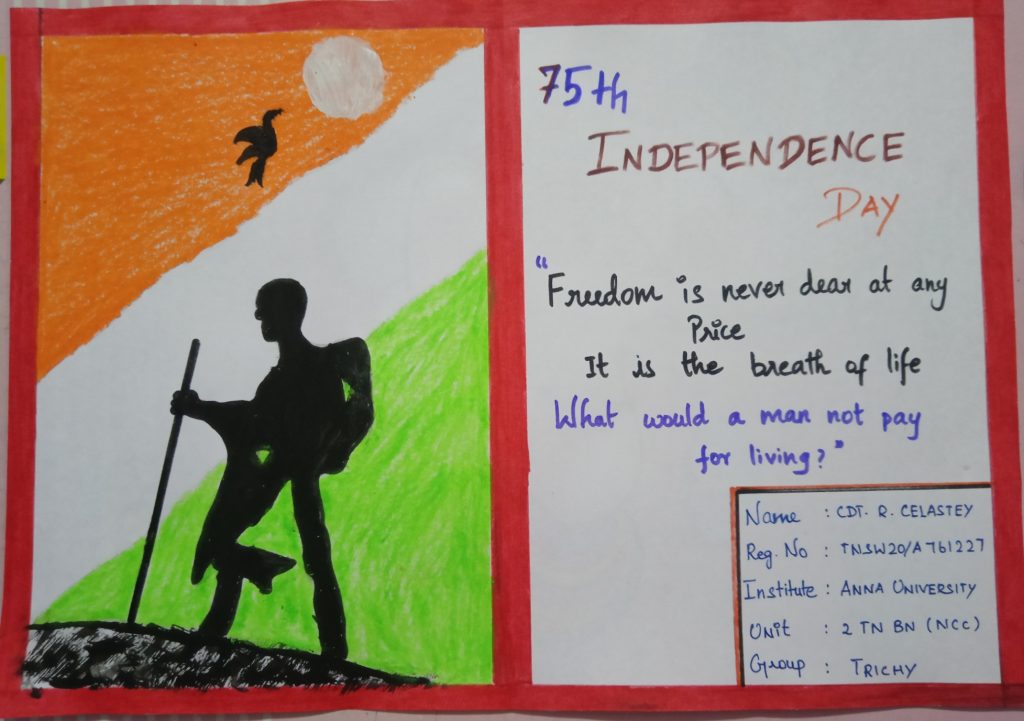 75th
INDEPENDENCE
DAY
"Freedom is never dear at any
Price
It is the breath of life
What would a man not pay
for living?"
Name : CDT. R. CELASTEY
Reg. No : TNSW20/A761227
Institute : ANNA UNIVERSITY
Unit : 2 TN BN (NCC)
Group : TRICHY